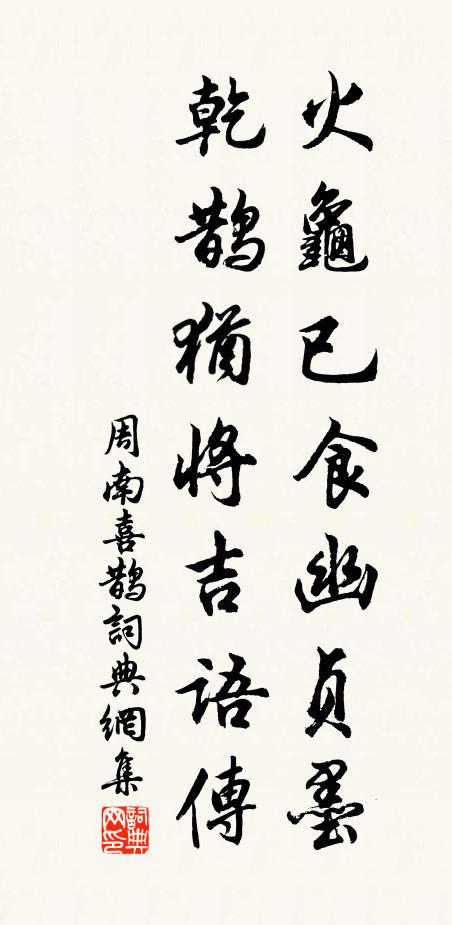 火龜已食幽貞墨
乾鵲猶將吉語傳
周南喜鵲詞典網集
詞典網印